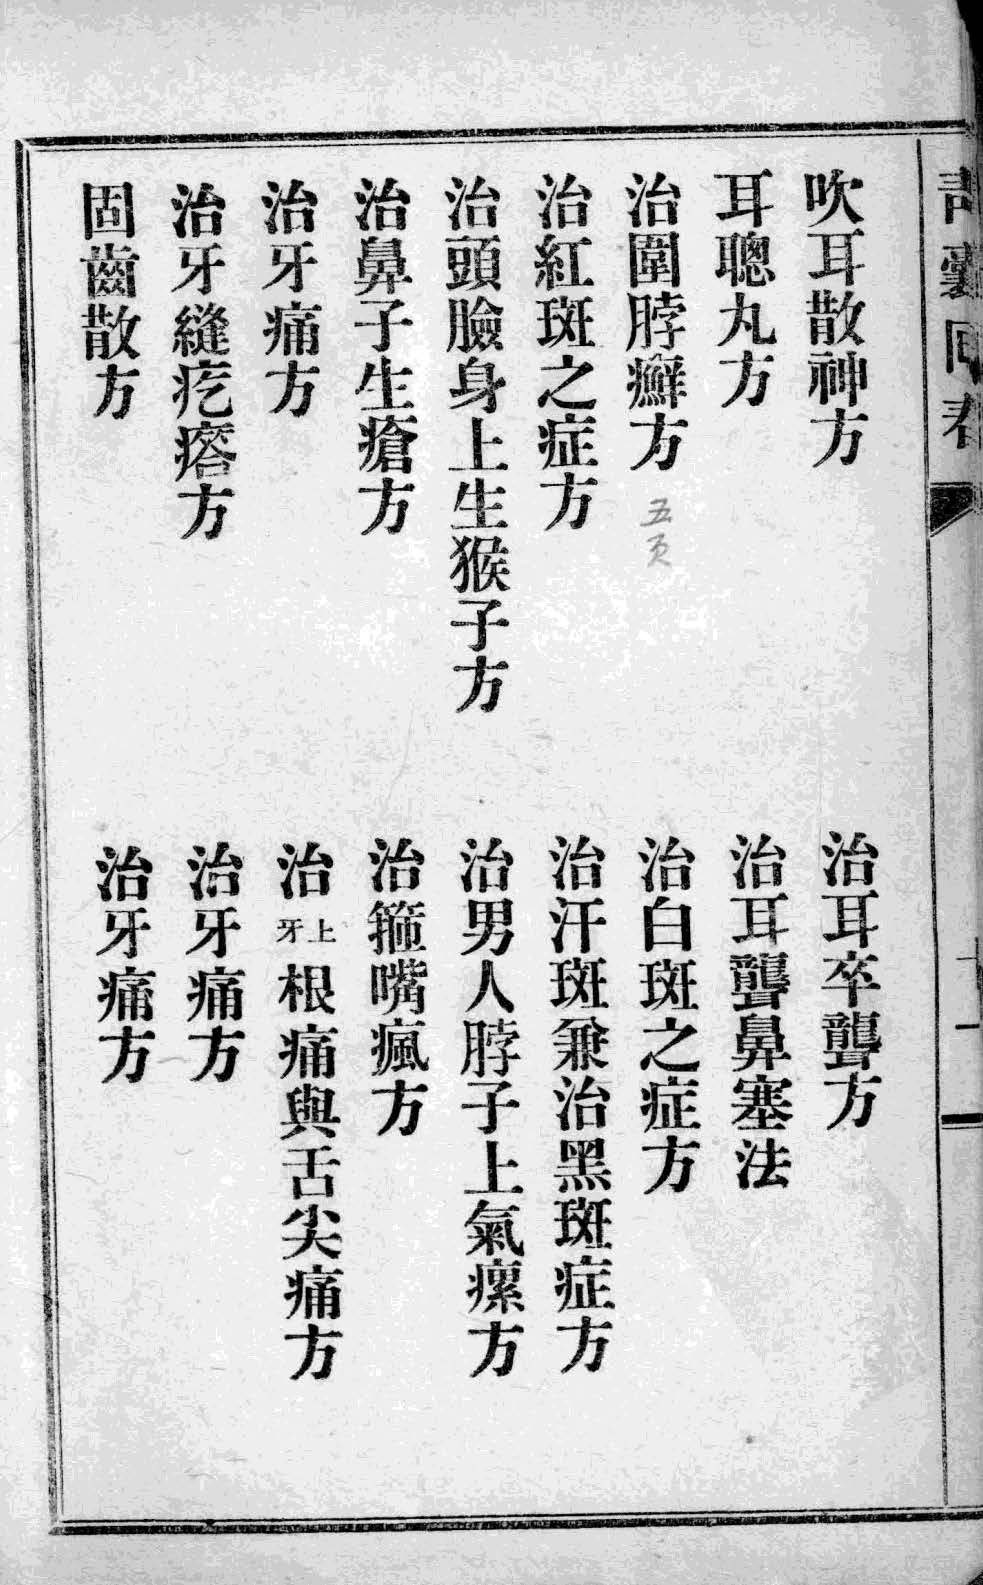 吹耳散神方
治耳卒聾方
耳聰丸方
治耳聾鼻塞法
治圍脖癬方 五頁
治白斑之症方
治紅斑之症方
治汗斑兼治黑斑症方
治頭臉身上生猴子方
治男人脖子上氣瘰方
治鼻子生瘡方
治箍嘴瘋方
治牙痛方
治上牙根痛與舌尖痛方
治牙縫疙瘩方
治牙痛方
固齒散方
治牙痛方